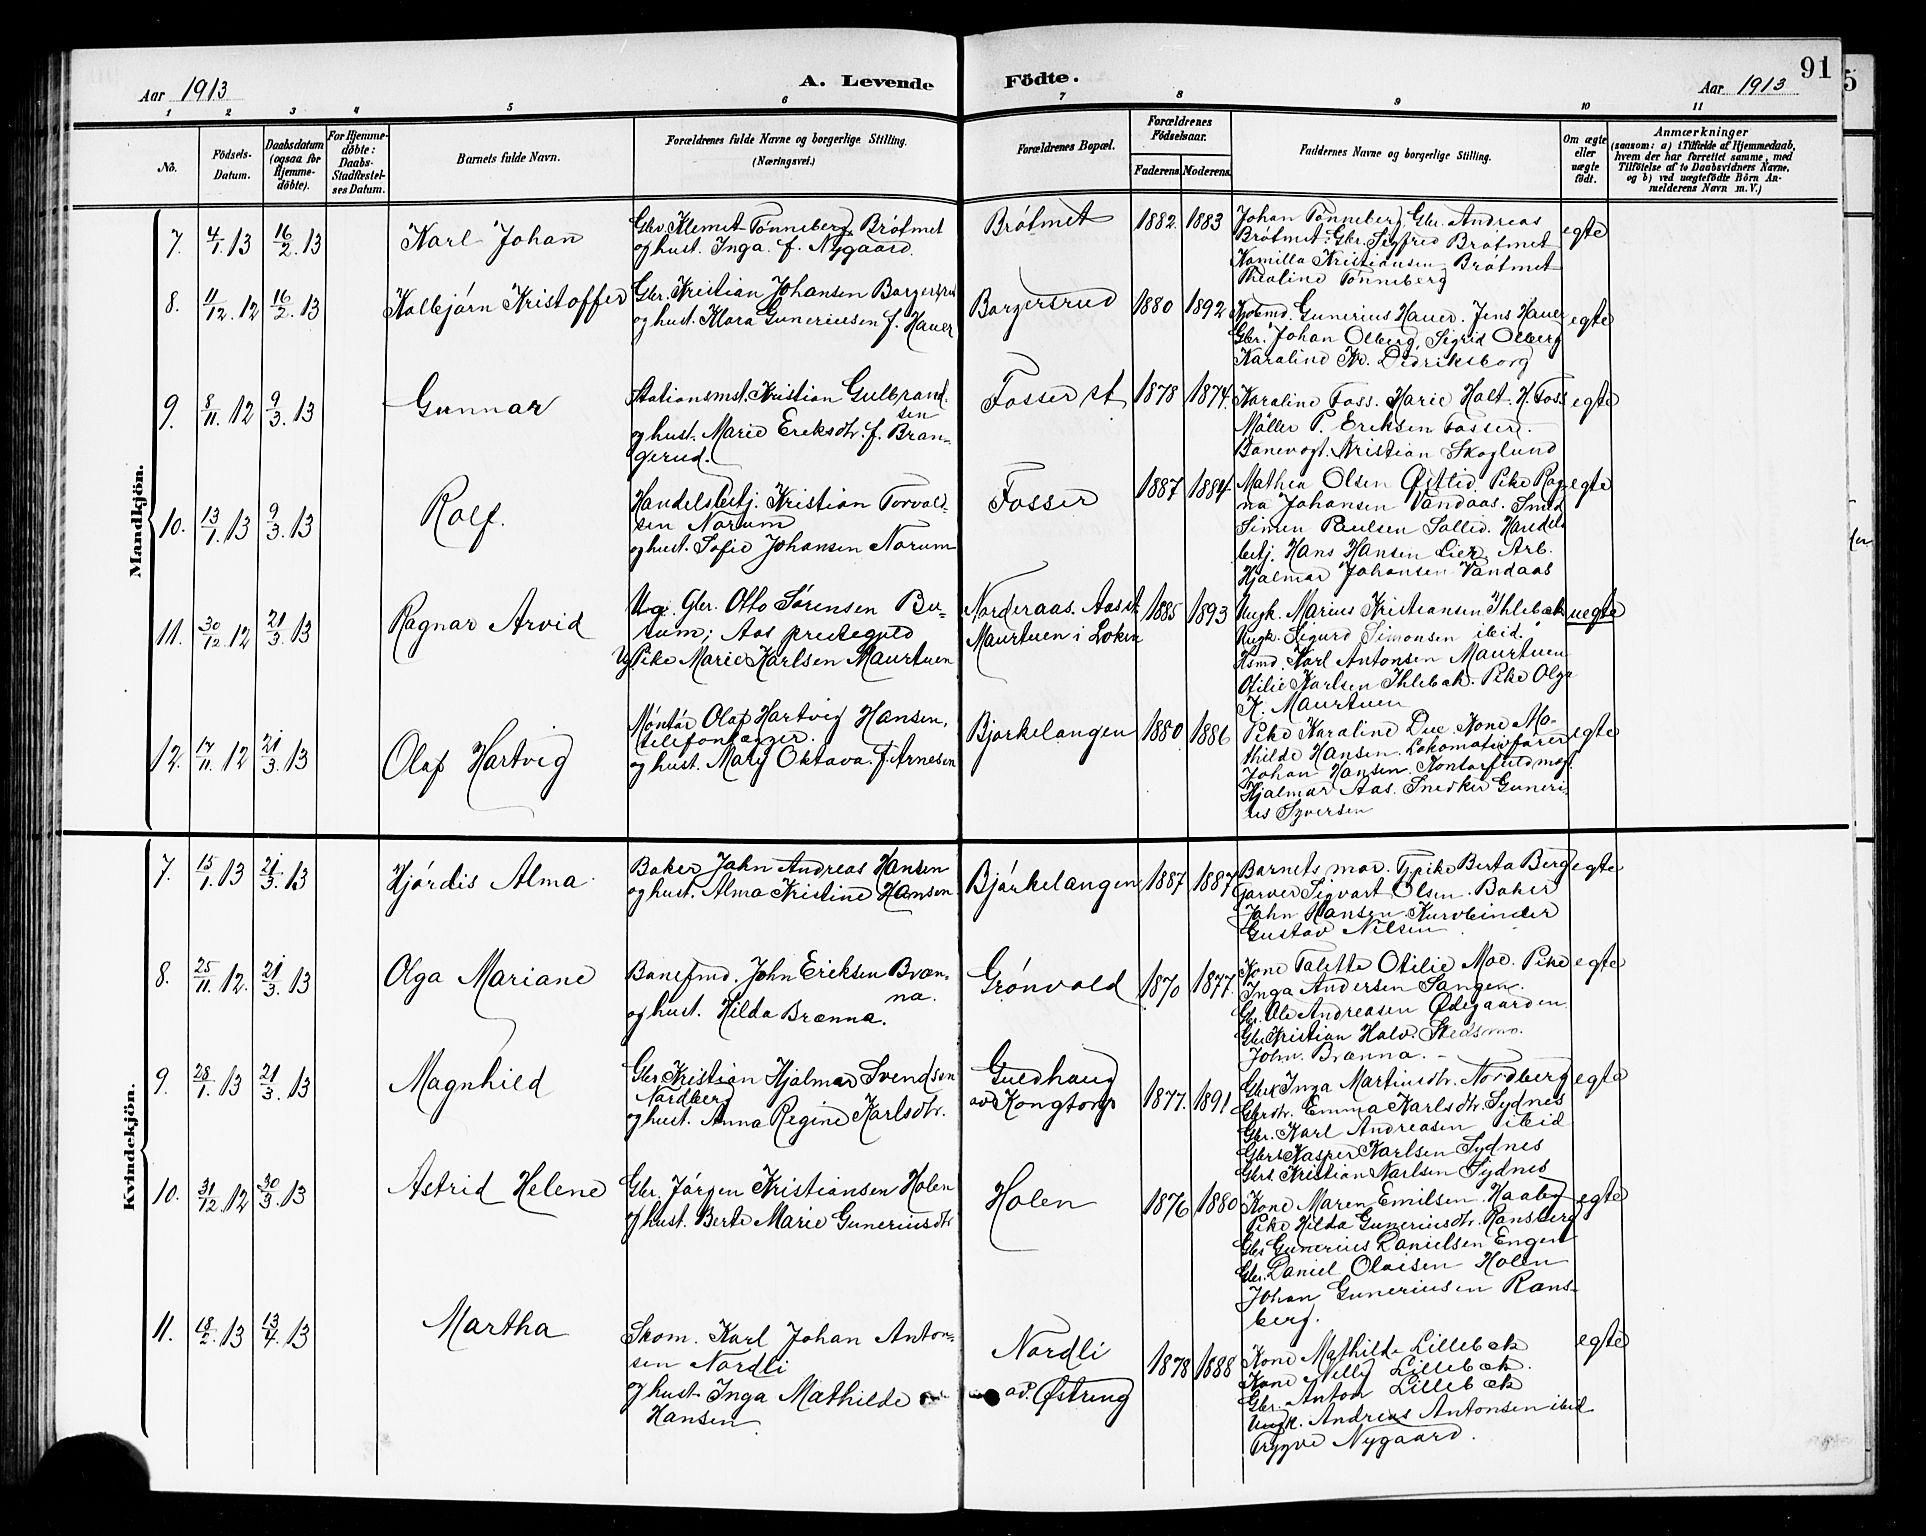 91
Aar 1913
A. Levende Födte.
Aar 1913
1 2 3 4 5 6 7 8 9 10 11
No.
Födsels-
Datum.
Daabsdatum
(ogsaa for
Hjemme-
döbte).
For Hjemme-
döbte:
Daabs-
Stadfæstel-
ses Datum.
Barnets fulde Navn.
Forældrenes fulde Navne og borgerlige Stilling.
(Næringsvei.)
Forældrenes Bopæl.
Forældrenes
Födselsaar.
Faderens. Moderens.
Faddernes Navne og borgerlige Stilling.
Om ægte
eller
uægte
födt.
Anmærkninger
(saasom: a) i Tilfælde af Hjemmedaab,
hvem der har forrettet samme, med
Tilföielse af to Daabsvidners Navne,
og b) ved uægtefödte Börn An-
melderens Navn m. V.)
Mandkjön.
7. 4/1.13 16/2.13
Karl Johan
Gbr. Klemet Tønneberg Bråtmet
og hust. Inga f. Nygaard.
Bråtmet
1882. 1883
Johan Tønneberg Gbr. Andreas
Bråtmet. Gbr. Sigfred Bråtmet
Kamilla Kristiansen Bråtmet
Thialine Tønneberg
egte
8. 11/12.12 16/2.13
Kolbjørn Kristoffer
Gbr. Kristian Johansen Borgersrud
og hust. Klara Guneriusen f. Hauer
Borgersrud
1880 1892
Gunerius Hauer. Jens Hauer
Gbr. Johan Olberg, Sigrid Olberg
Karaline Kr. Didriksborg
egte
9. 8/11.12 9/3.13
Gunnar
Stationsmst. Kristian Gulbrand-
sen
og hust. Marie Eriksdtr. f. Bran-
gerud.
Fosser st
1878 1874.
Karaline Foss. Marie Holt. H. Foss
Møller P. Eriksen Fosser.
Banevogt. Kristian Skoglund
egte
10. 13/1.13 9/3.13
Rolf.
Handelsbetj. Kristian Torvald-
sen Norum
og hust. Sofie Johansen Norum
Fosser
1887 1884.
Mathea Olsen Østlid Pike Rag-
na Johansen Vandaas. Smed
Simen Paulsen Sollid. Handels
betj. Hans Hansen Lier, Arb.
Hjalmar Johansen Vandaas
egte
11. 30/12.12 21/3.13
Ragnar Arvid
Ug. Gbr. Otto Sørensen Bu-
rum; Aas prestegjeld
Ug Pike Marie Karlsen Maurtuen
Norderaas. Aas st
Maurtuen i Løken
1885 1893
Ungk. Marius Kristiansen Ihlebæk
Ungk. Sigurd Simonsen ibid.
Hsmd. Karl Antonsen Maurtuen
Otilie Karlsen Ihlebæk. Pike Olga
K. Maurtuen
uegte
12. 17/11.12 21/3.13
Olaf Hartvig
Montør Olaf Hartvig Hansen,
telefonlægger.
og hust. Mary Oktava f. Arnesen
Bjørkelangen
1880 1886
Pike Karaline Due. Kone Ma-
thilde Hansen. Lokomotivfører
Johan Hansen. Kontorfuldmeg.
Hjalmar Aas. Snedker Guneri-
us Syversen
egte
Kvindekjön.
7. 15/1.13 21/3.13
Hjørdis Alma
Baker John Andreas Hansen
og hust. Alma Kristine Hansen
Bjørkelangen
1887 1887
Barnets mor. Tjpike Berta Berg
Garver Sigvart Olsen. Baker
John Hansen. Kurvbinder
Gustav Nilsen
egte
8. 25/11.12. 21/3.13
Olga Mariane
Banefmd. John Eriksen Bræn-
na.
og hust. Hilda Brænna.
Grønvold
1870 1877.
Kone Talette Otilie Moe. Pike
Inga Andersen Sangen.
Gbr. Ole Andreasen Ødegaarden
Gbr. Kristian Halv. Stedsmo.
John Brænna.
egte
9. 28/1.13 21/3.13
Magnhild
Gbr. Kristian Hjalmar Svendsen
Nordberg
og hust. Anna Regine Karlsdtr.
Guldhaug
av Kongtorp
1877. 1891
Inga Martinsdtr. Nordberg
Gbrdtr. Emma Karlsdtr. Sydnes
Gbr. Karl Andreasen ibid
Gbrs. Kasper Karlsen Sydnes
Gbrs. Kristian Karlsen Sydnes
egte
10. 31/12.12 30/3.13
Astrid Helene
Gbr. Jørgen Kristiansen Holen
og hust. Berte Marie Guneriusdtr
Holen
1876 1880
Kone Maren Emilsen Haaby
Pike Hilda Guneriusdtr. Ransberg
Gbr Gunerius Danielsen Engen
Gbr. Daniel Olaisen Holen
Johan Guneriusen Rans-
berg.
egte
11. 18/2.13 13/4.13
Martha
Skom. Karl Johan Anton-
sen Nordli
og hust. Inga Mathilde
Hansen
Nordli
av. Østreng
1878 1888
Kone Mathilde Lillebæk
Kone Nelly Lillebæk.
Gbr. Anton Lillebæk
Ungk. Andreas Antonsen ibid
Trygve Nygaard.
egte